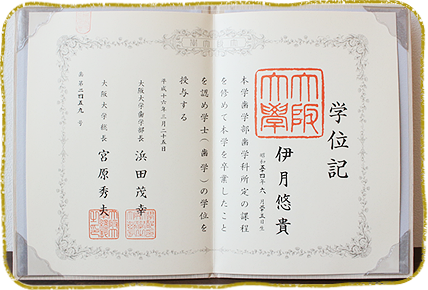 学位記
大阪大學
伊月悠貴
昭和五四年六月二五日生
本学歯学部歯学科所定の課程
を修めて本学を卒業したこと
を認め学士(歯学)の学位を
授与する
平成十六年三月二十五日
大阪大学歯学部長 浜田茂幸
大阪大学総長 宮原秀夫
第二四五九号